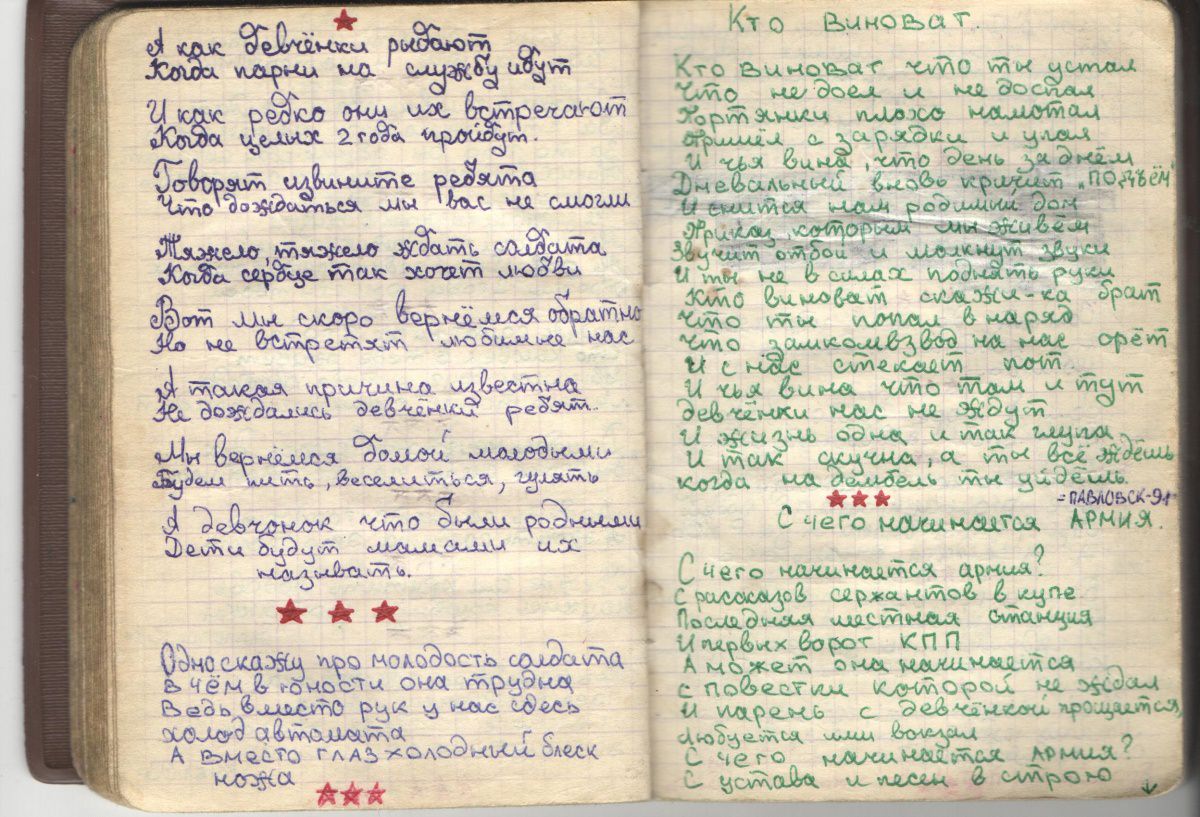 А как девчёнки рыдают
Когда парни на службу идут
И как редко они их встречают
Когда целых 2 года пройдут.
Говорят извините ребята
Что дождаться мы вас не смогли
Тяжело, тяжело ждать солдата
Когда сердце так хочет любви
Вот мы скоро вернёмся обратно
Но не встретят любимые нас
А такая причина известна
Не дождались девчёнки ребят.
Мы вернёмся домой молодыми
Будем пить, веселиться, гулять
А девчонок что были родными
Дети будут мамами их
называть.
Одно скажу про молодость солдата
В чём в юности она трудна
Ведь вместо рук у нас здесь
холод автомата
А вместо глаз холодный блеск
ножа
Кто виноват.
Кто виноват что ты устал
Что не доел и не доспал
Портянки плохо намотал
Пришёл с зарядки и упал
И чья вина, что день за днём
Дневальный вновь кричит „ПОДЪЁМ"
И снится нам родимый дом
Приказ, которым мы живём
Звучит отбой и молкнут звуки
И ты не в силах поднять руки
Кто виноват скажи-ка брат
Что ты попал в наряд
Что замкомвзвод на нас орёт
И с нас стекает пот.
И чья вина что там и тут
девчёнки нас не ждут
И жизнь одна и так глупа
И так скучна, а ты всё ждёшь
когда на дембель ты уйдёшь.
=ПАВЛОВСК-91
С чего начинается АРМИЯ.
С чего начинается армия?
С рассказов сержантов в купе
Последняя местная станция
И первых ворот КПП
А может она начинается
с повестки которой не ждал
И парень с девчёнкой прощается,
Любуется ими вокзал
С чего начинается армия?
С устава и песен в строю